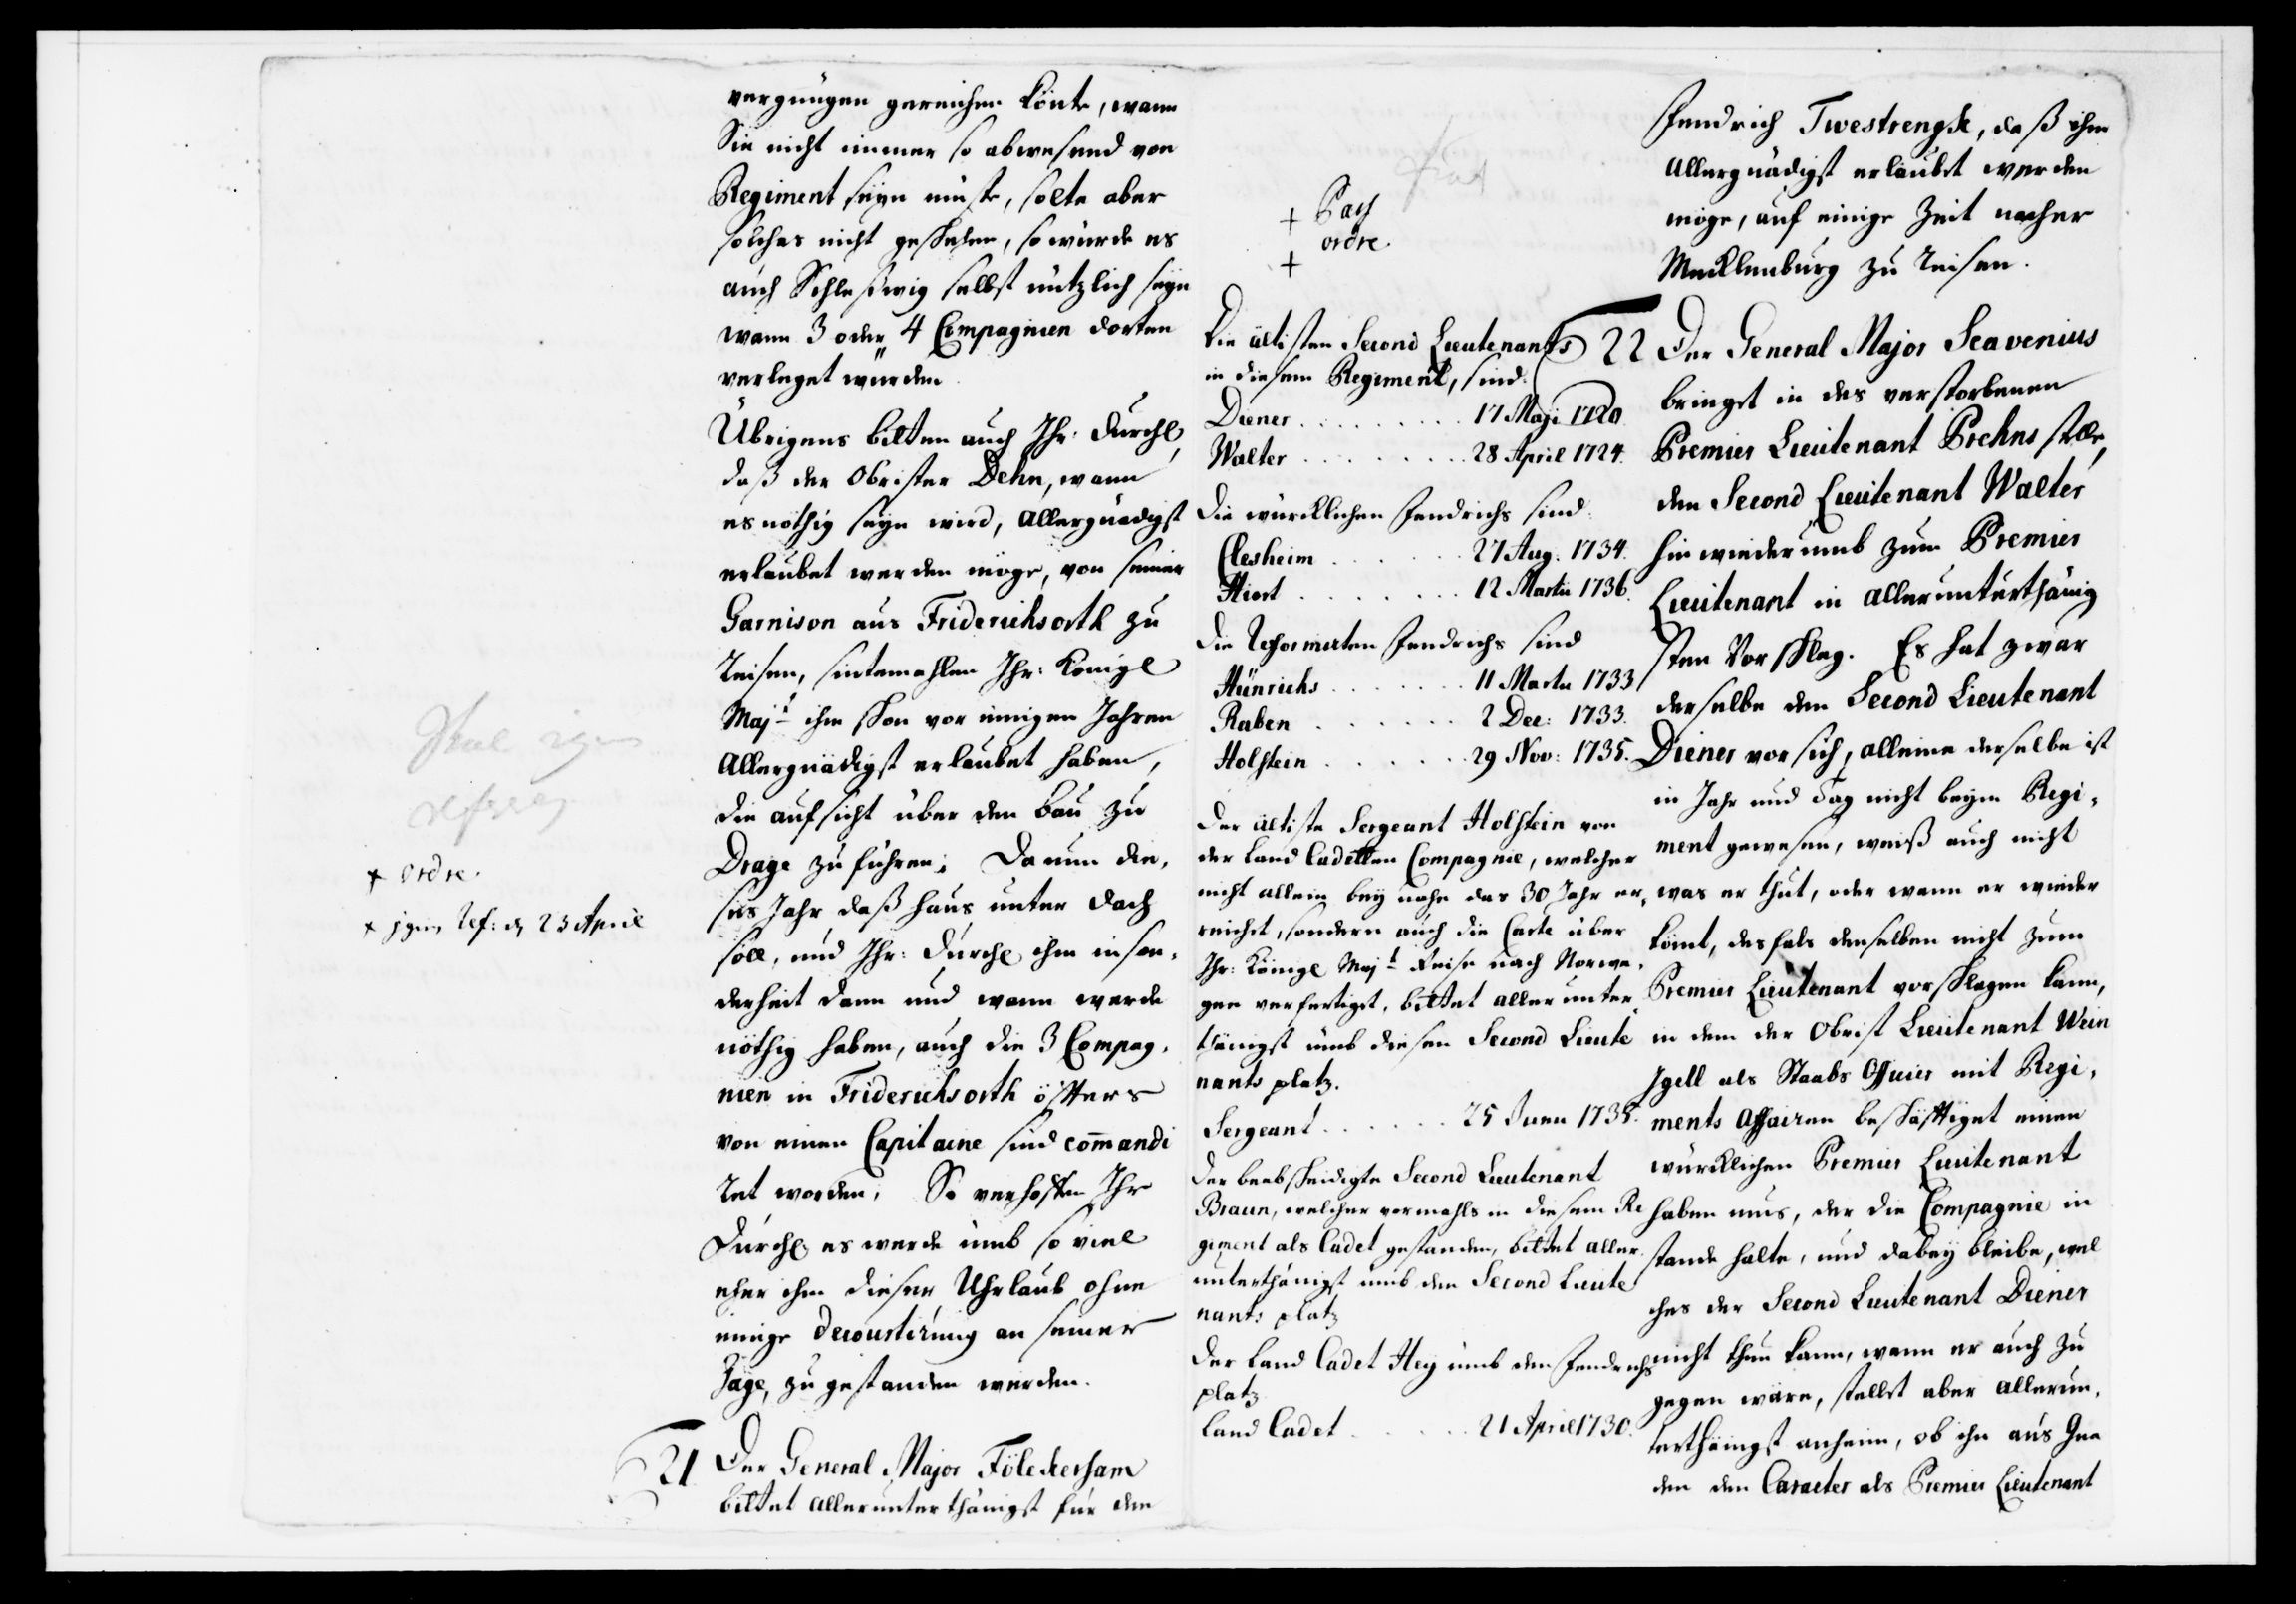 vergnügen gereichen könte, wann
Sie nicht immer so abwesend von
Regiment seyn müste, solte aber
solches nicht geschehen, so würde es
auch Schleswig selbst nützlich seyn
wann 3 oder 4 Compagnien dorten
verleget würden
Übrigens bitten auch Ihr: Durchl,
daß der Obrister Dehn, wann
es nöthig seyn wird, Allergnädigst
erlaubet werden möge, von seiner
Garnison aus Friderichsorth zu
Reisen, sintemahlen Ihr: Königl
Majt ihm schon vor einigen Jahren
Allergnädigst erlaubet haben,
die aufsicht über den bau zu
Drage zu führen; Da nun die,
ses Jahr daß haus unter Dach
soll, und Ihr: Durchl ihm inson,
derheit dann und wann werde
nöthig haben, auch die 3 Compag,
nien in Friderichsorth öffters
von einen Capitaine sind com̄andi
ret worden; So verhoffen Ihr
Durchl es werde umb so viel
eher ihm dieser Uhrlaub ohne
einige decourtirung an seiner
Gage, zu gestanden werden.
21 Der General Major Fölckersham
bittet allerunterthänigst für den
+ ordre.
+ Ref: d 23 April
+ Pass
ordre.
+
Die ältisten Second Lieutenants
in diesem Regiment, sind.
Diener . . . . . . . . 17 Maji 1720.
Walter . . . . . . . . 28 April 1724.
Die würcklichen Fendrichs sind:
Clesheim . . . . . 27 Aug. 1734.
Hiort . . . . . . . 12 Martii 1736.
Die Reformirten Fendrichs sind
Hünrichs . . . . . . . 11 Martii 1733
Raben . . . . . . 2 Dec: 1733.
Holstein . . . . . . 29 Nov: 1735.
Der ältiste Sergeant Holstein von
der Land Cadetten Compagnie, welcher
nicht allein bey nahe das 30 Jahr er,
reichet, sondern auch die Carte über
Ihr: Königl Majt Reise nach Norwe,
gen verfertiget, bittet allerunter
thänigst umb diesen Second Lieute
nants platz.
Sergeant . . . . . . 25 Junii 1735.
Der beabscheidigte Second Lieutenant
Braun, welcher vormahls in diesem Re
giment als Cadet gestanden, bittet aller
unterthänigst umb den Second Lieute
nants platz
Der Land Cadet Hey umb den Fendrichs
platz
Land Cadet . . . . . . 21 April 1730.
Fendrich Twestrengk, daß ihm
Allergnädigst erlaubet werden
möge, auf einige Zeit nacher
Mecklenburg zu Reisen.
22 Der General Major Scavenius
bringet in des verstorbenen
Premier Lieutenant Prehns stelle,
den Second Lieutenant Walter
hinwiederumb zum Premier
Lieutenant in allerunterthänig
sten Vorschlag. Es hat zwar
derselbe den Second Lieutenant
Diener vor sich, alleine derselbe ist
in Jahr und Tag nicht beym Regi,
ment gewesen, weiß auch nicht
was er thut, oder wann er wieder
kömt, desfals denselben nicht zum
Premier Lieutenant vorschlagen kann,
in dem der Obrist Lieutenant Wein
Igell als Staabs Officier mit Regi,
ments Affairen beschäfftiget einen
würcklichen Premier Lieutenant
haben mus, der die Compagnie in
stande halte, und dabey bleibe, wel
ches der Second Lieutenant Diener
nicht thun kann, wann er auch zu
gegen wäre, stellet aber allerun,
terthänigst anheim, ob ihn aus Gna
den den Caracter als Premier Lieutenant